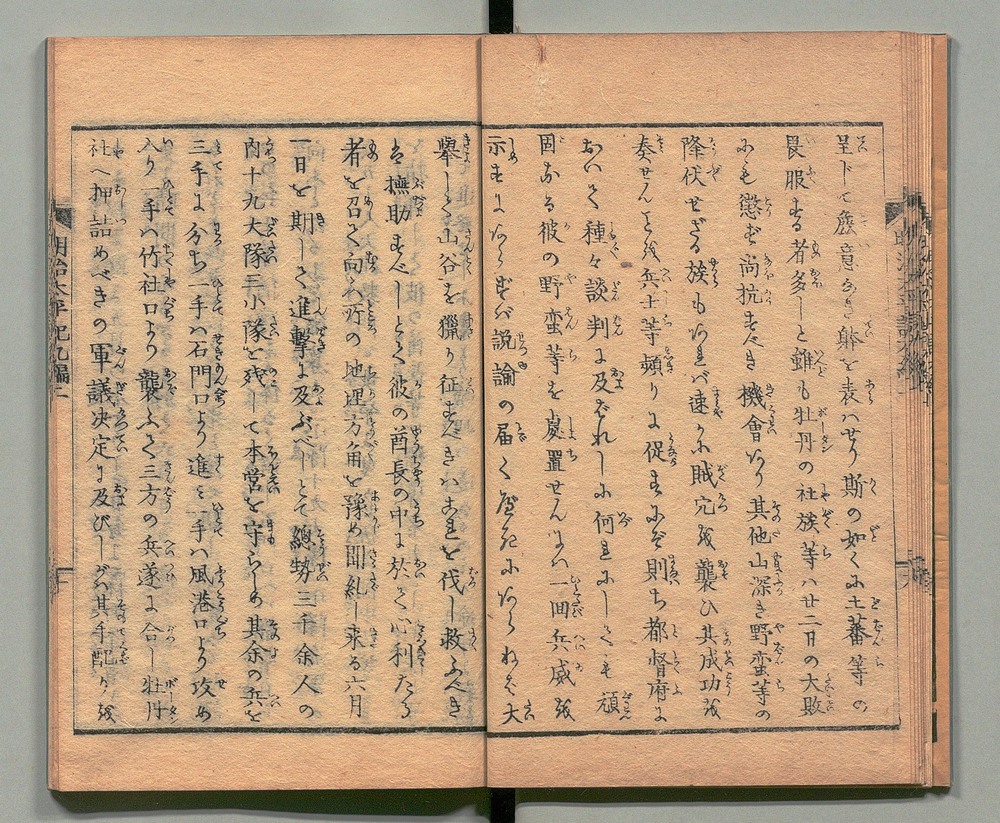 呈下て疑意なき躰を表ハせり斯の如くに土蕃等の
畏服する者多しと雖も牡丹の社族等ハ廿二日の大敗
にも懲ず尚抗すべき機會あり其他山深き野蛮等の
降伏せざる族もあれバ速かに賊穴を襲ひ其成功を
奏せんとを兵士等頻りに促すにぞ則ち都督府に
おいて種々談判に及ばれしに何れにしても頑
固なる彼の野蛮等を處置せんにハ一回兵威を
示すにあらずバ説諭の届く處にあらねバ大
擧して山谷を獵り征すべきハこれを伐し救ふべき
は撫助すべしとて彼の酋長の中に於て心利たる
者を召て向ふ所の地理方角を豫め聞糺し来る六月
一日を期して進撃に及ぶべしとて總勢三千余人の
内十九大隊三小隊を残して本営を守らしめ其余の兵を
三手に分ち一手ハ石門口より進ミ一手ハ風港口より攻め
入り一手ハ竹社口より襲ふて三方の兵遂に合し牡丹
社へ押詰めべきの軍議決定に及びしバ其手配りを
明治太平記九編二